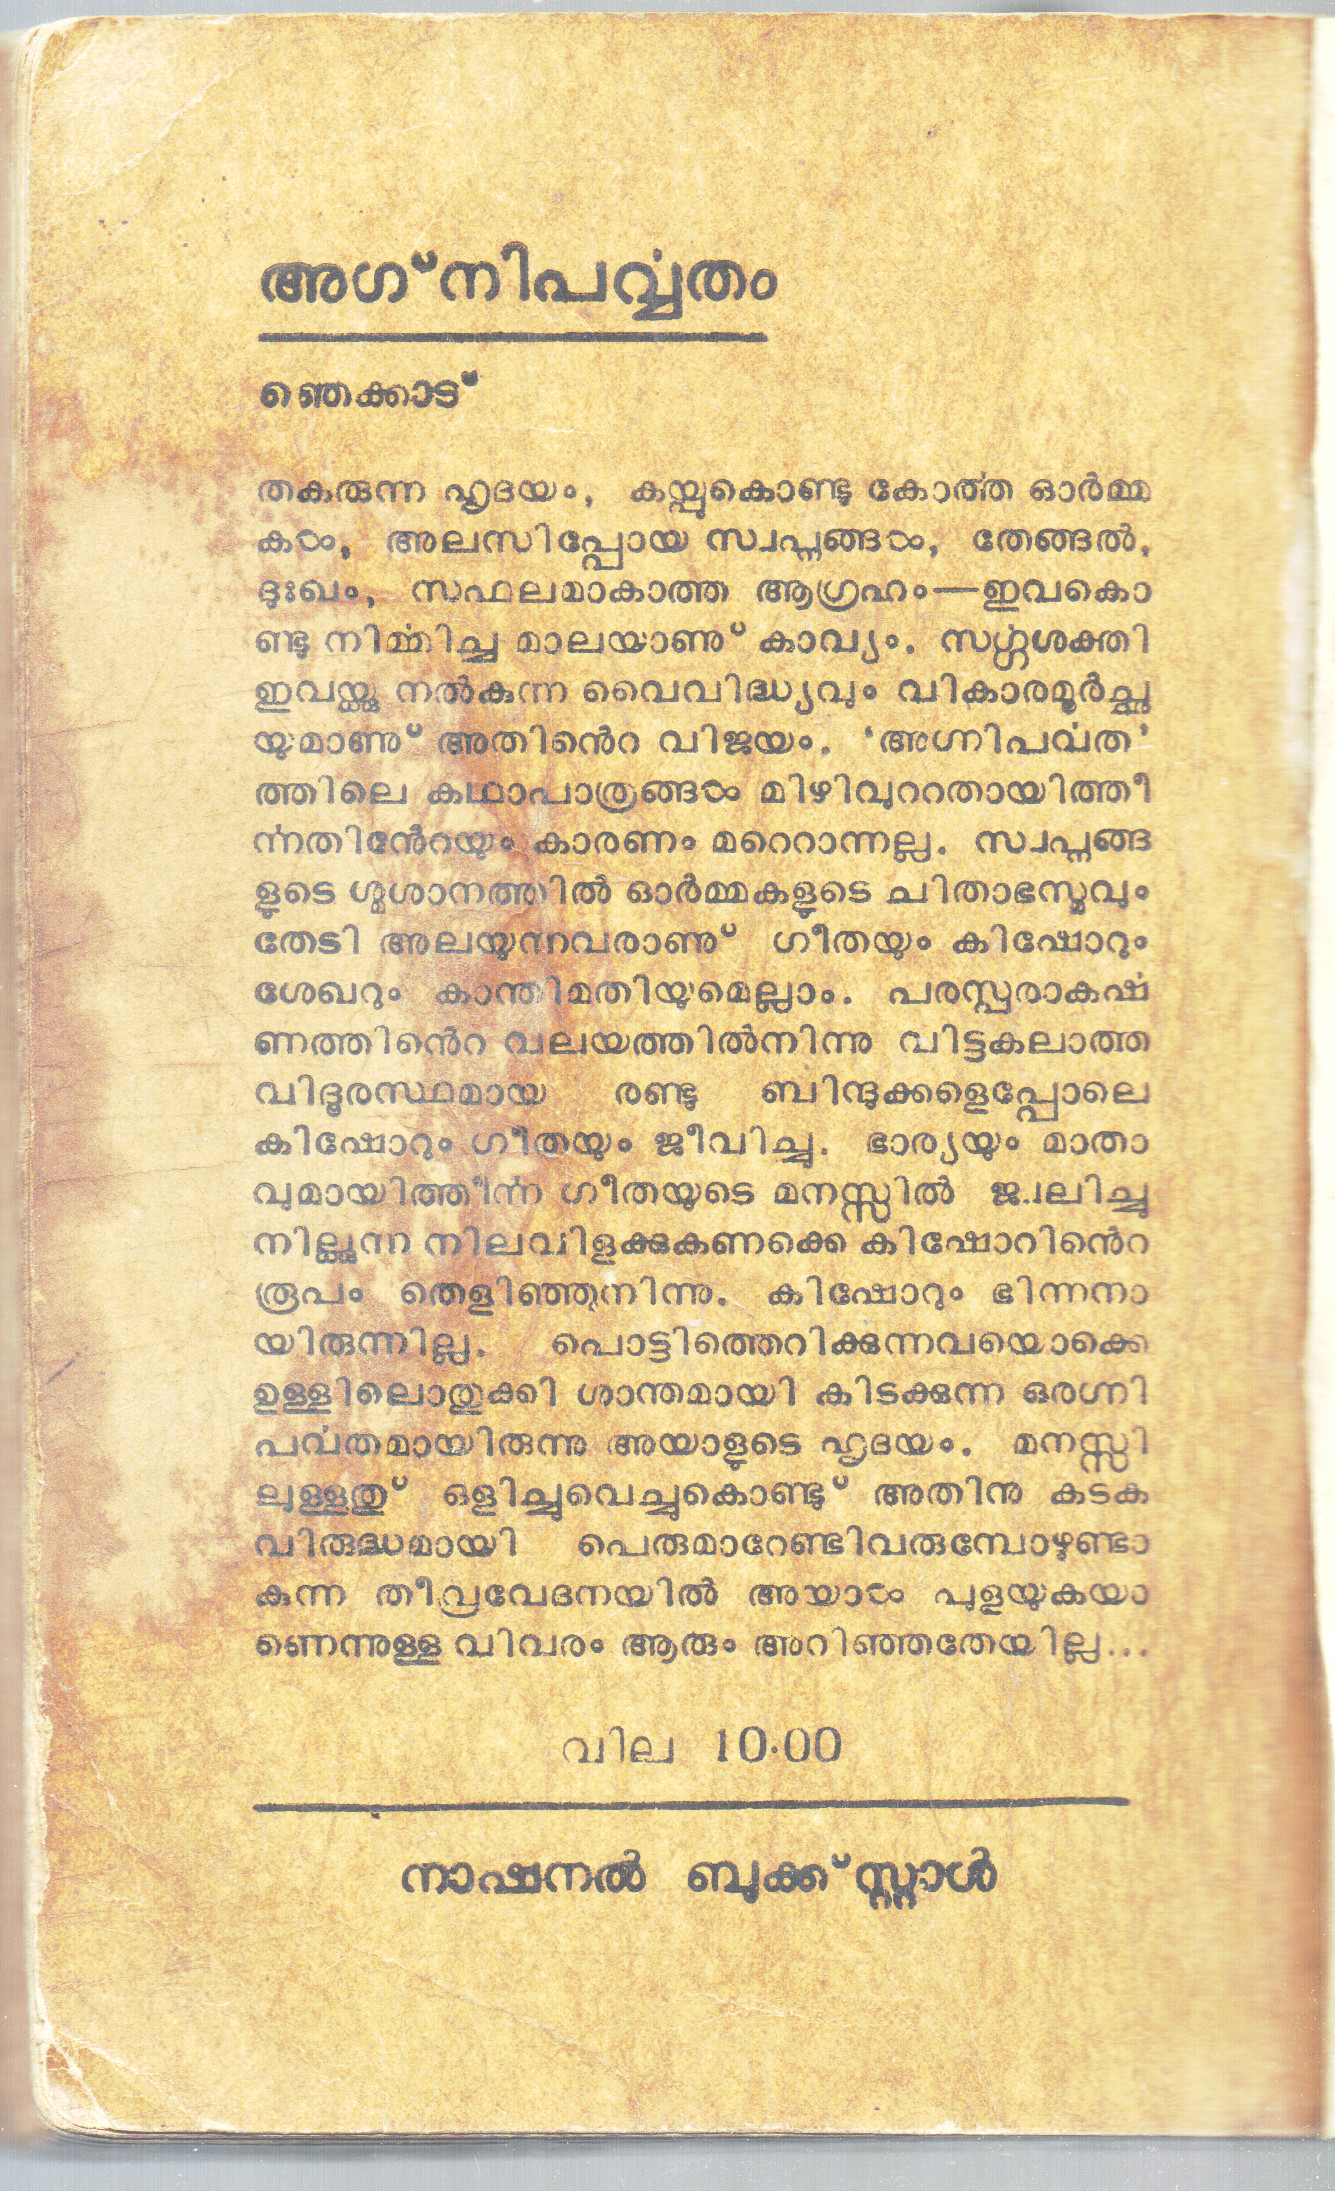 അഗ്നിപൎവ്വതം
ഞെക്കാട്
തകരുന്ന ഹൃദയം, കയ്പുകൊണ്ടു കോൎത്ത ഓർമ്മ
കൾ, അലസിപ്പോയ സ്വപ്നങ്ങൾ, തേങ്ങൽ,
ദുഃഖം, സഫലമാകാത്ത ആഗ്രഹം—ഇവകൊ
ണ്ടു നിൎമ്മിച്ച മാലയാണു് കാവ്യം. സൎഗ്ഗശക്തി
ഇവയ്ക്കു നൽകുന്ന വൈവിദ്ധ്യവും വികാരമൂർച്ഛ
യുമാണു് അതിൻെറ വിജയം. ‘അഗ്നിപൎവത’
ത്തിലെ കഥാപാത്രങ്ങൾ മിഴിവുററതായിത്തീ
ൎന്നതിൻേറയും കാരണം മറെറാന്നല്ല. സ്വപ്നങ്ങ
ളുടെ ശ്മശാനത്തിൽ ഓർമ്മകളുടെ ചിതാഭസ്മവും
തേടി അലയുന്നവരാണു് ഗീതയും കിഷോറും
ശേഖറും കാന്തിമതിയുമെല്ലാം. പരസ്പരാകൎഷ
ണത്തിൻെറ വലയത്തിൽനിന്നു വിട്ടകലാത്ത
വിദൂരസ്ഥമായ രണ്ടു ബിന്ദുക്കളെപ്പോലെ
കിഷോറും ഗീതയും ജീവിച്ചു. ഭാര്യയും മാതാ
വുമായിത്തീൎന്ന ഗീതയുടെ മനസ്സിൽ ജ്വലിച്ചു
നില്ക്കുന്ന നിലവിളക്കുകണക്കെ കിഷോറിൻെറ
രൂപം തെളിഞ്ഞുനിന്നു. കിഷോറും ഭിന്നനാ
യിരുന്നില്ല. പൊട്ടിത്തെറിക്കുന്നവയൊക്കെ
ഉള്ളിലൊതുക്കി ശാന്തമായി കിടക്കുന്ന ഒരഗ്നി
പൎവതമായിരുന്നു അയാളുടെ ഹൃദയം. മനസ്സി
ലുള്ളതു് ഒളിച്ചുവെച്ചുകൊണ്ടു് അതിനു കടക
വിരുദ്ധമായി പെരുമാറേണ്ടിവരുമ്പോഴുണ്ടാ
കുന്ന തീവ്രവേദനയിൽ അയാൾ പുളയുകയാ
ണെന്നുള്ള വിവരം ആരും അറിഞ്ഞതേയില്ല...
വില 10·00
നാഷനൽ ബുക്ക്സ്റ്റാൾ